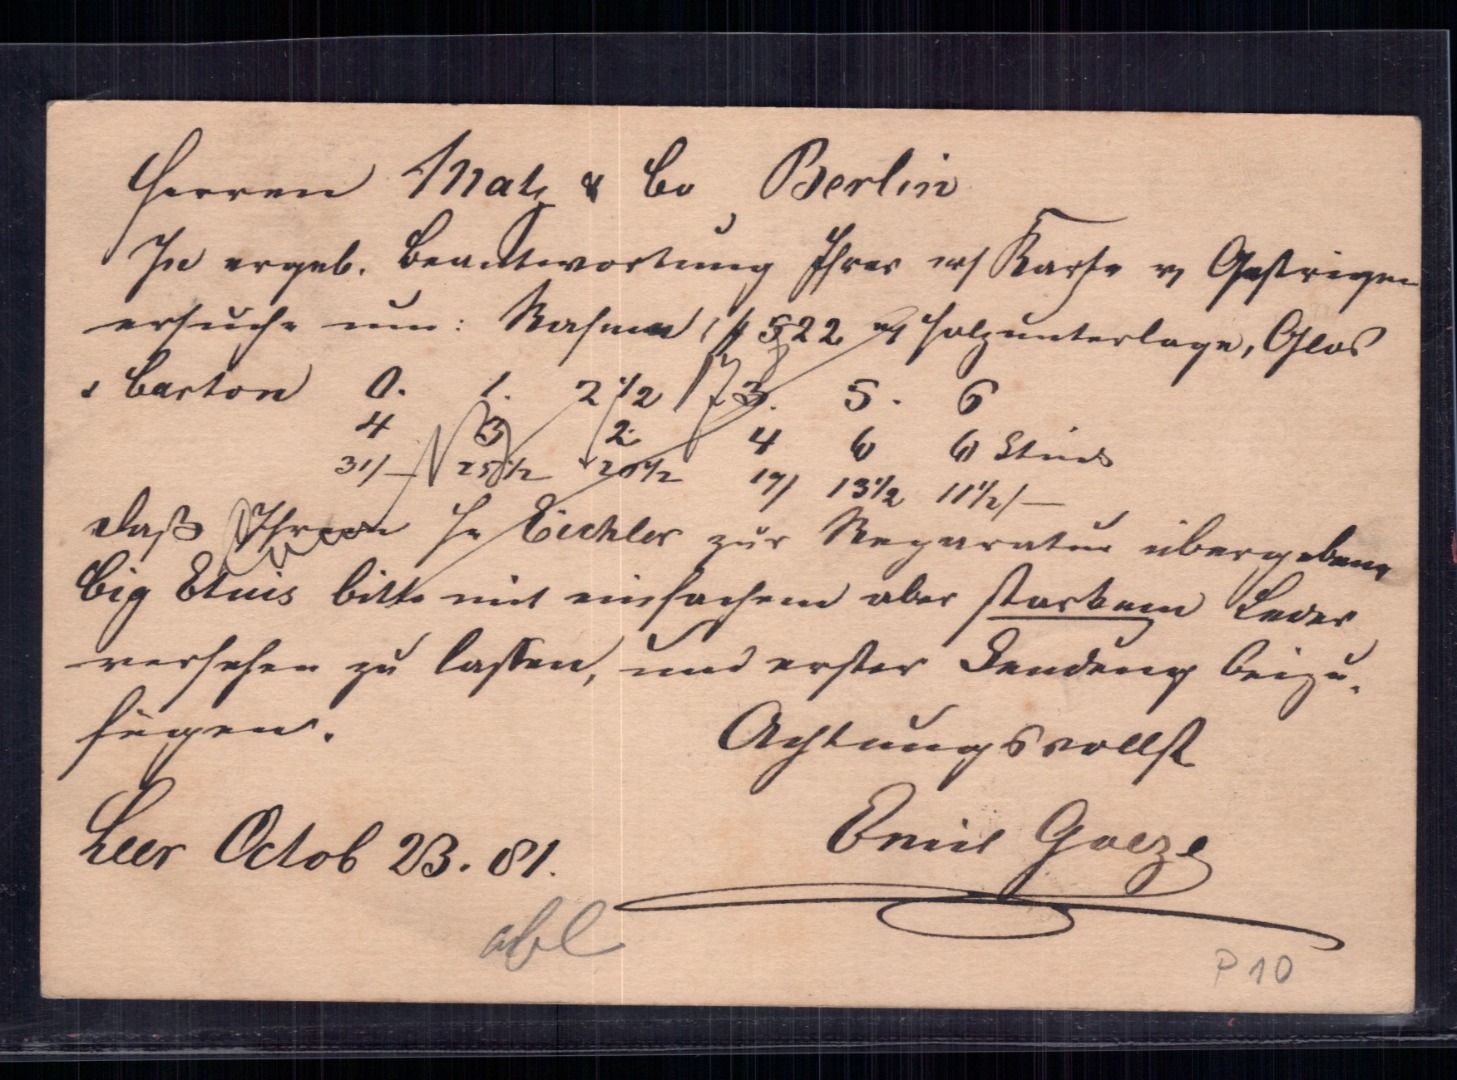 Herren Matz & Co Berlin
In ergeb. Beantwortung Ihrer Karte v. Gestrigen
ersuche um: Rahmen 522 Holzunterlage, Glas
& Carton 0. 1. 2 1/2 3. 5. 6
4 3 2 4 6 6 Stück
31/— 25 1/2 20 1/2 17/ 13 1/2 11 1/2/—
daß Ihrem H. Eichler zur Reparatur übergebene
Cig Etuis bitte mit einfachem aber starkem Leder
versehen zu lassen, und erster Sendung beizu-
fügen.
Achtungsvollst
Leer Octob 23. 81.
Emil Goeze
P 10